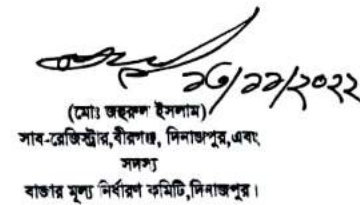 ২৩/১১/২০২২
(মোঃ জহুরুল ইসলাম)
সাব-রেজিস্ট্রার, বীরগঞ্জ, দিনাজপুর, এবং
সদস্য
বাজার মূল্য নির্ধারণ কমিটি, দিনাজপুর।